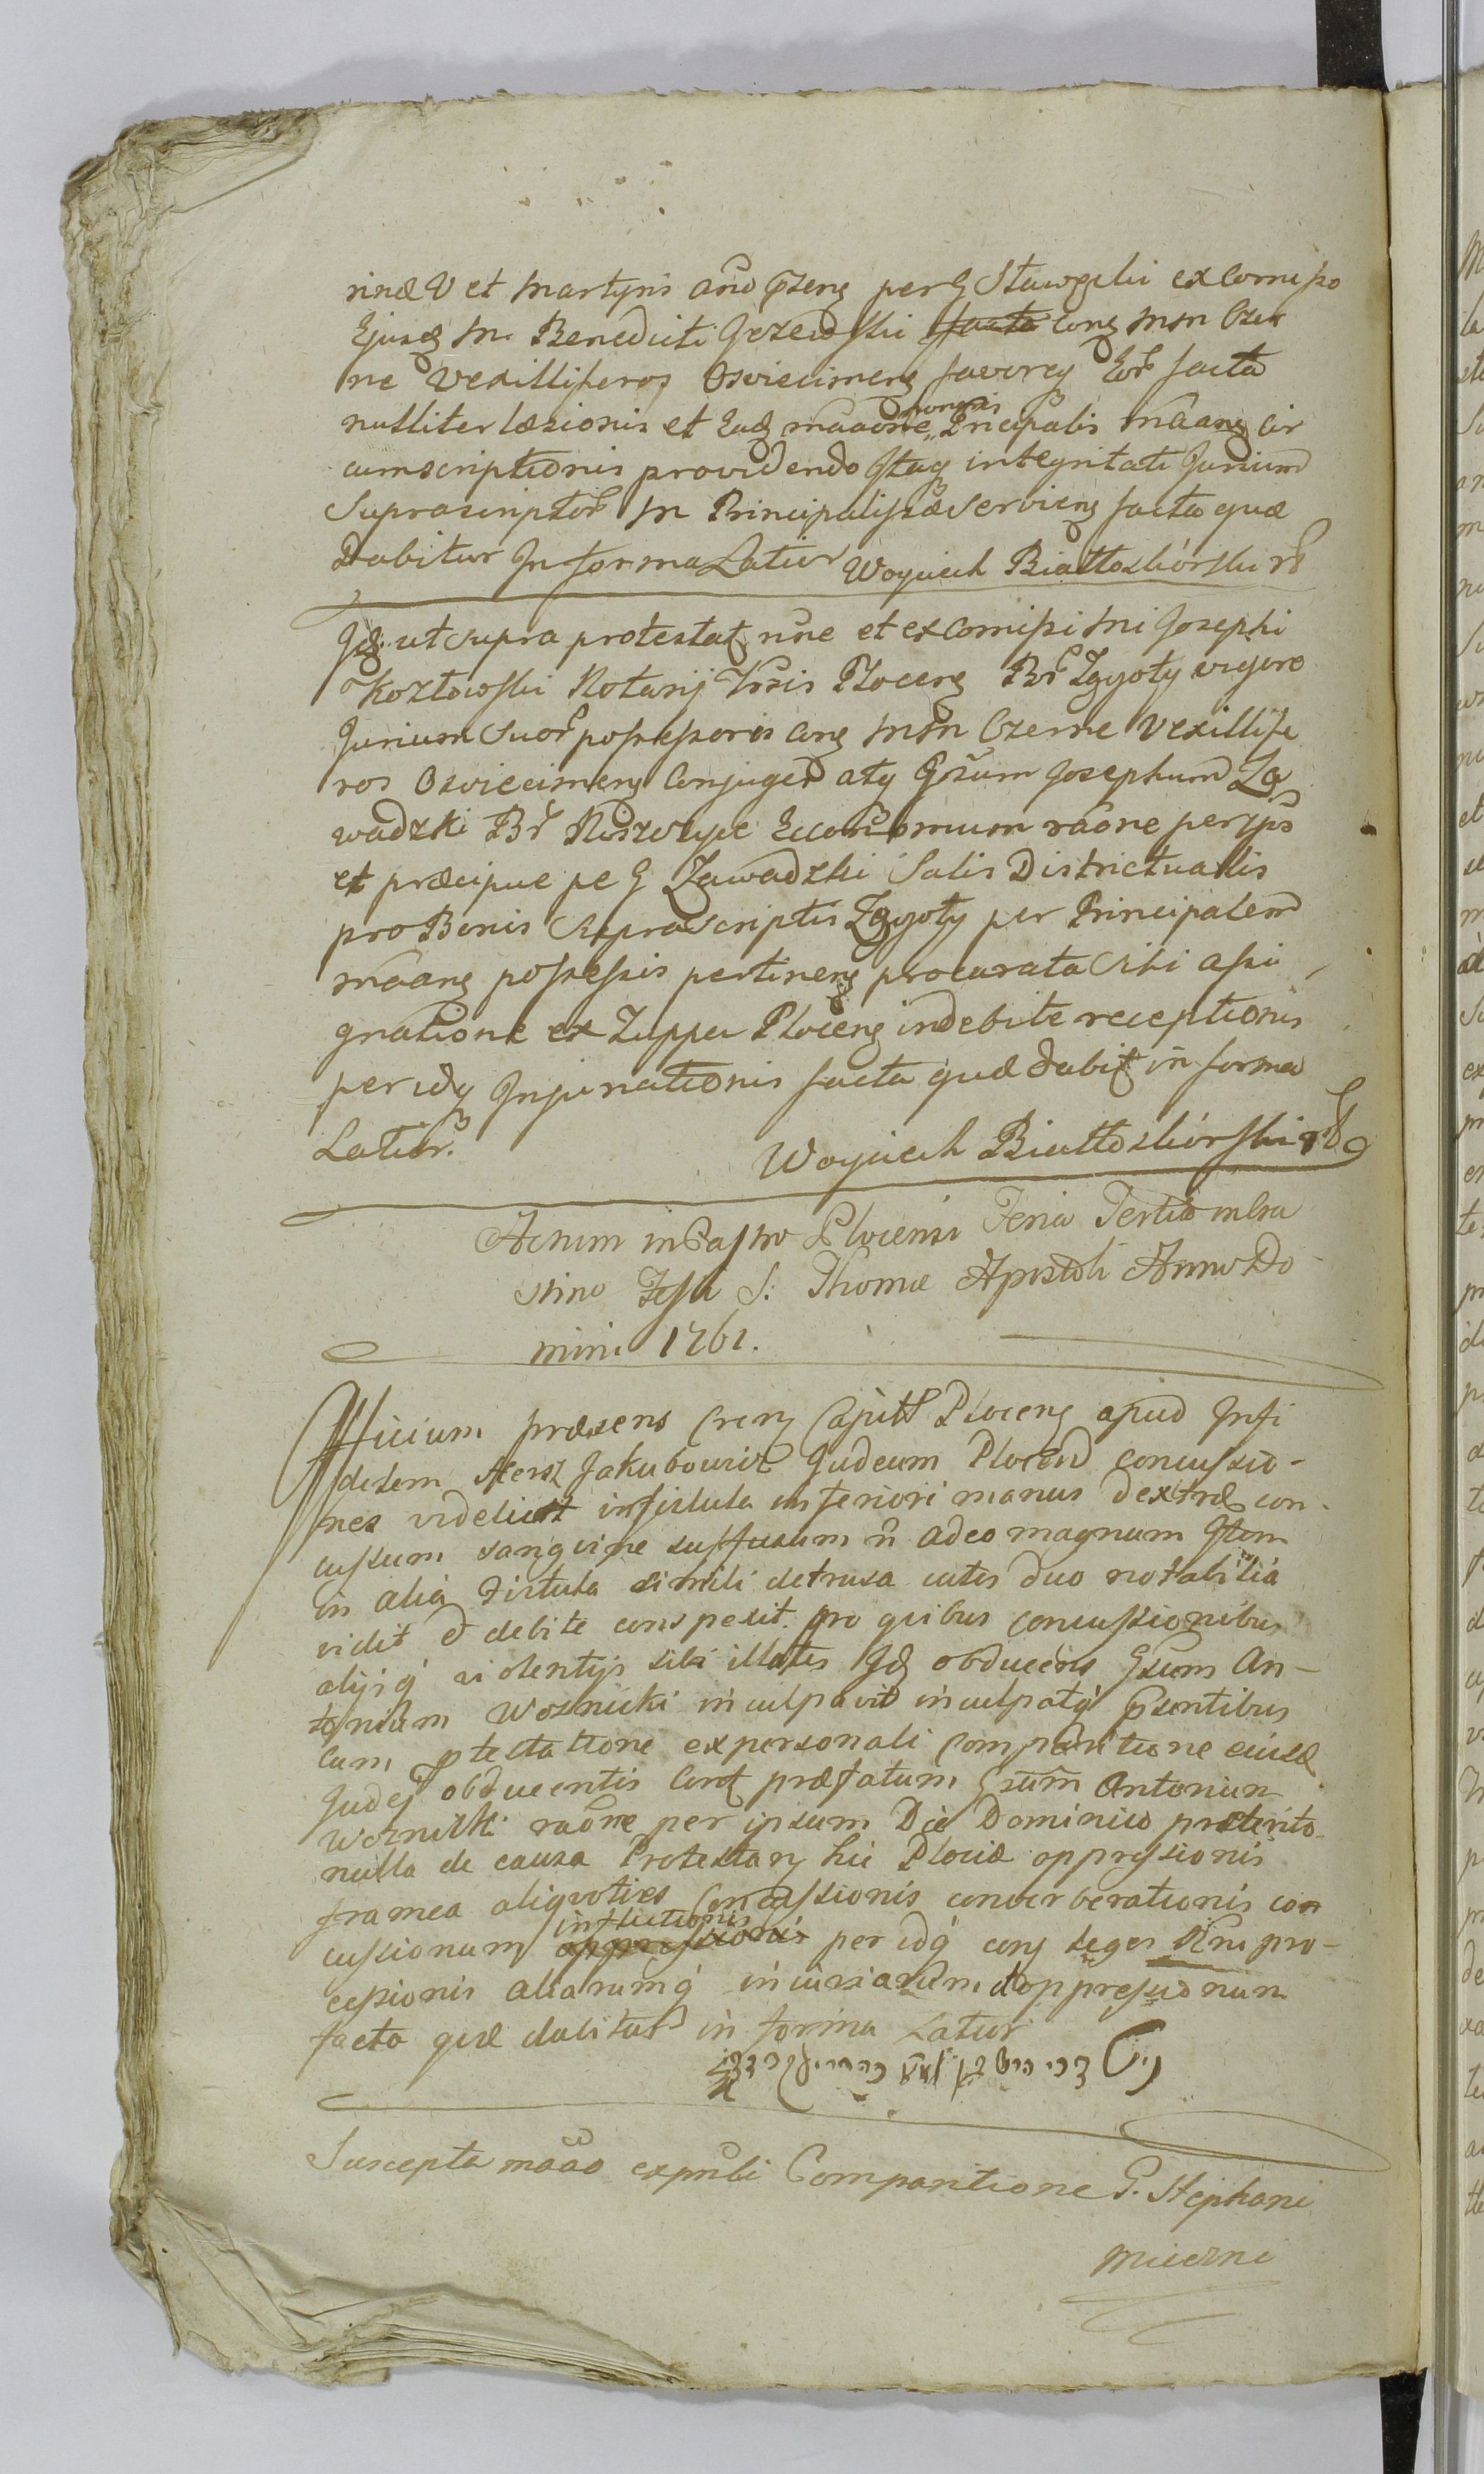 rinæ V et Martyris año pzeng per G Stawgebi ex Comisso
Ejusq M. Benedicti Grzewski facta cong Mm Czer
ne Vexilliferos Osviecimeng favoreg Eor facta
nulliter læsionis et Eadg maaone Pncipalis Maang Cir
cumscriptionis providendo Itaq integritati Jurium
Supra scriptor M Principalissæ Serviens facta quæ
dabitur In forma Latior Woyciech Białłoskórski
Idg: ut supra protestatq nñe et ex Comissi Mi Josephi
Kozłowski Notarij Trsis Ploceng Br Zgygoty vigore
Jurium Suor possessoris cong Mm Czerne Vexillife
ros Osviecimeng Conjuges atq Gosum Josephum Za
wadzki Br Economum raõne per ips
et præcipue pe G Zawadzki Salis Districtualis
pro Bonis Supra Scriptis Zgygoty per Principalem
maang possessis pertineng procurata Sibi assi
gnatione ex Zuppa Ploceng indebite receptionis
per idq Injunationis facta quæ dabit in forma
Latior. Woyciech Białłoskórski
Actum in Castro Plocensi Feria Tertia in Cra
stino Festi S: Thomæ Apostoli Anno Do
mini 1761.
Officium præsens Crens Capitl Ploceng apud Infi
delem Hersz Jakubowicz Judeum Plocens concussio-
nes videlicet in fistula inferiori manus dextræ con-
cussum sanguine suffusum ñ adeo magnum Item
in alia Fistula simili detrusa cutis duo notabilia
vidit & debite conspexit. pro quibus concussionibus
alijsq violentijs sibi illatis Idg obducens Gsum An-
tonium Woznicki inculpavit inculpatq Psentibus
Cum ptestatione ex personali Comparitione eiusd
Judej obducentis Cont præfatum Gsum Antonium
Woznicki raõne per ipsum Die Dominico præterito
nulla de causa Protestang hic Plociæ oppressionis
framea aliquoties Concussionis converberationis con
cussionum inflictionis oppressionis per idq cong leges Rni pro-
cessionis aliarumq iniuriarum & oppressionum
facta quæ dabitur in forma Latior
Suscepta maao ex pnli Comparitione G. Stephani
Mierzni